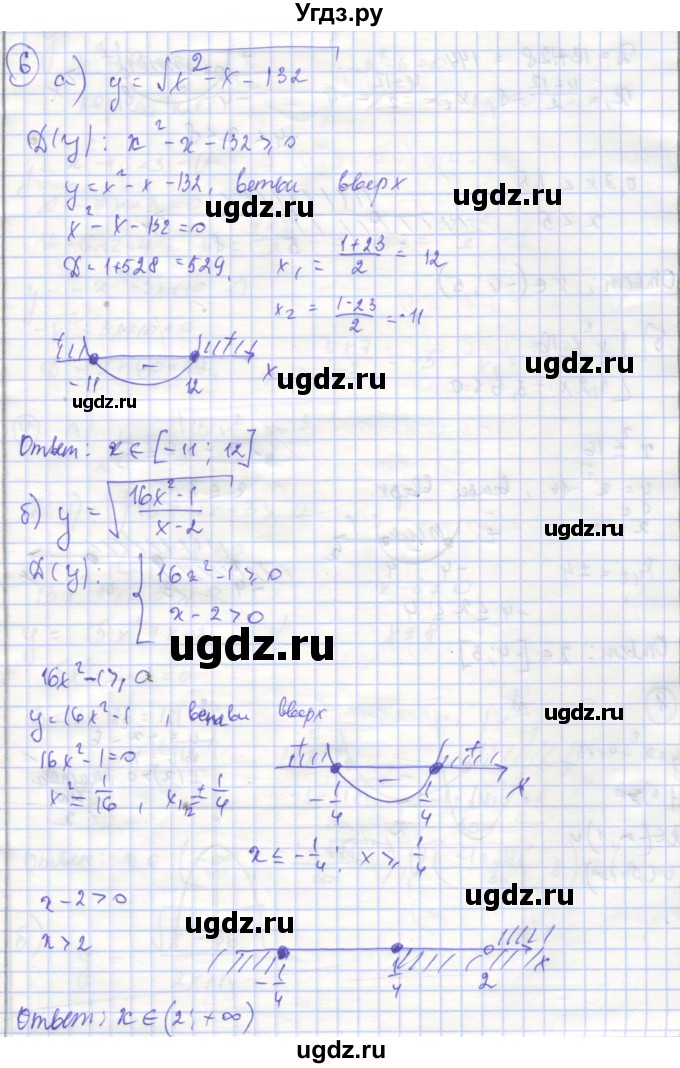 Угдз.ру
6
а) y = √x² - x - 132
D(y): x² - x - 132 ≥ 0
y = x² - x - 132, ветви вверх
ugdz.ru
ugdz.ru
x² - x - 132 = 0
D = 1 + 528 = 529, x₁ = (1+23)/2 = 12
ugdz.ru
x₂ = (1-23)/2 = -11
+ - +
-11 12 x
ugdz.ru
ugdz.ru
ugdz.ru
Ответ: x ∈ [-11; 12]
ugdz.ru
б) y = √(16x² - 1)/(x - 2)
ugdz.ru
D(y): { 16x² - 1 ≥ 0
x - 2 > 0
ugdz.ru
16x² - 1 ≥ 0
y = 16x² - 1, ветви вверх
ugdz.ru
16x² - 1 = 0
+ - +
x² = 1/16, x₁,₂ = ± 1/4
-1/4 1/4 x
x ≤ -1/4; x ≥ 1/4
x - 2 > 0
ugdz.ru
ugdz.ru
x > 2
-1/4 1/4 2 x
Ответ: x ∈ (2; +∞)
ugdz.ru